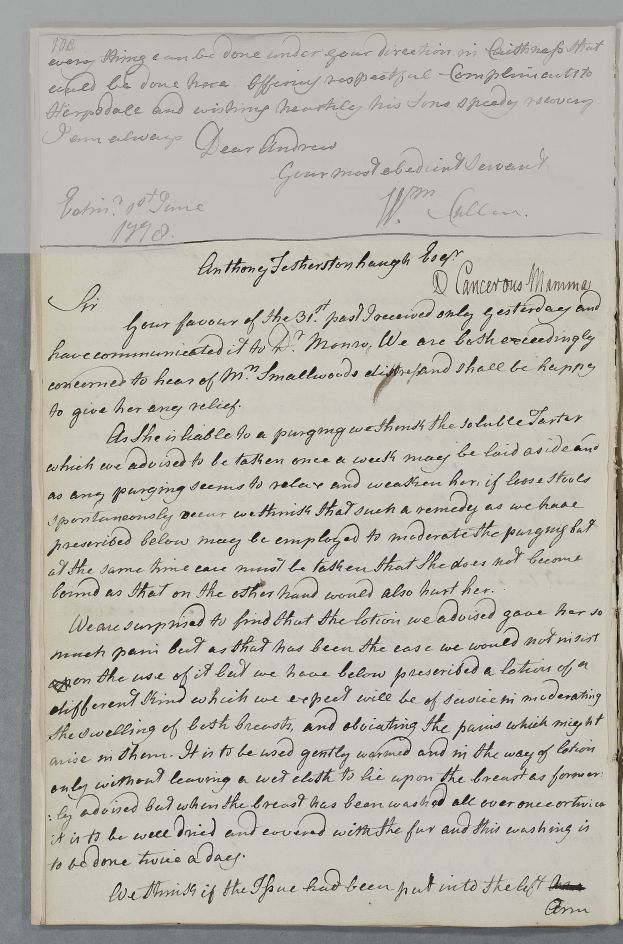 every thing can be done under your direction in Caithness that
could be done here. Offering respectful Compliments to
Herpsdale and wishing heartily his Sons speedy recovery
I am always Dear Andrew
Your most obedient Servant
Wm Cullen.
Edinr. 1st June
1778.
Anthony Fetherstonhaugh Esqr
D Cancerous Mamma
Sir
Your favour of the 31st. past I received only yesterday and
have communicated it to Dr. Monro, We are both exceedingly
concerned to hear of Mrs Smallwoods distress and shall be happy
to give her any relief.
As she is liable to a purging we think the soluble Tartar
which we advised to be taken once a week may be laid aside and
as any purging seems to relax and weaken her, if loose stools
spontaneously occur we think that such a remedy as we have
prescribed below may be employed to moderate the purging but
at the same time care must be taken that she does not become
bound as that on the other hand would also hurt her.
We are surprised to find that the lotion we advised gave her so
much pain but as that has been the case we would not insist
upon the use of it but we have below prescribed a lotion of a
different kind which we expect will be of service in moderating
the swelling of both breasts, and obviating the pains which might
arise in them. It is to be used gently warmed and in the way of lotion
only without leaving a wet cloth to lie upon the breast as former:
:ly advised but when the breast has been washed all over once or twice
it is to be well dried and covered with the fur and this washing is
to be done twice a day.
We think if the Issue had been put into the left
Arm